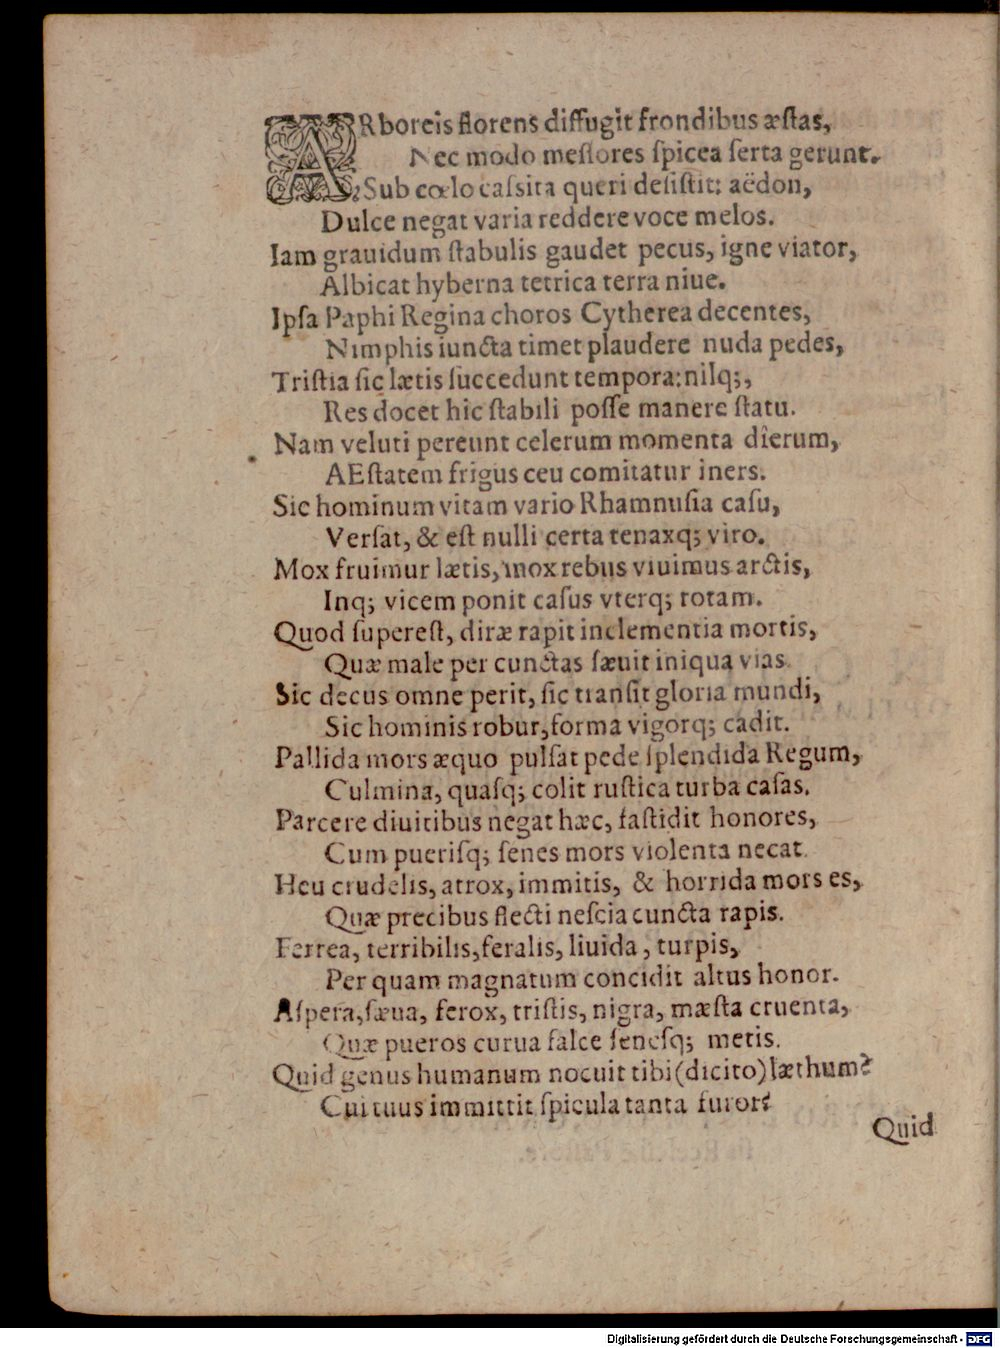 ARboreis florens diffugit frondibus æstas,
Nec modo meſſores ſpicea ſerta gerunt.
Sub cœlo caſsita queri deſiſtit: aëdon,
Dulce negat varia reddere voce melos.
Iam grauidum ſtabulis gaudet pecus, igne viator,
Albicat hyberna tetrica terra niue.
Ipſa Paphi Regina choros Cytherea decentes,
Nimphis iuncta timet plaudere nuda pedes,
Triſtia ſic lætis ſuccedunt tempora: nilq;,
Res docet hic ſtabili poſſe manere ſtatu.
Nam veluti pereunt celerum momenta dierum,
AEſtatem frigus ceu comitatur iners.
Sic hominum vitam vario Rhamnuſia caſu,
Verſat, & eſt nulli certa tenaxq; viro.
Mox fruimur lætis, mox rebus viuimus arctis,
Inq; vicem ponit caſus vterq; rotam.
Quod ſupereſt, diræ rapit inclementia mortis,
Quæ male per cunctas ſæuit iniqua vias.
Sic decus omne perit, ſic tranſit gloria mundi,
Sic hominis robur, forma vigorq; cadit.
Pallida mors æquo pulſat pede ſplendida Regum,
Culmina, quaſq; colit ruſtica turba caſas.
Parcere diuitibus negat hæc, faſtidit honores,
Cum pueriſq; ſenes mors violenta necat.
Heu crudelis, atrox, immitis, & horrida mors es,
Quæ precibus flecti neſcia cuncta rapis.
Ferrea, terribilis, feralis, liuida, turpis,
Per quam magnatum concidit altus honor.
Aſpera, ſæua, ferox, triſtis, nigra, mæſta cruenta,
Quæ pueros curua falce ſeneſq; metis.
Quid genus humanum nocuit tibi (dicito) læthum?
Cui tuus immittit ſpicula tanta furor?
Quid
Digitalisierung gefördert durch die Deutsche Forschungsgemeinschaft - DFG